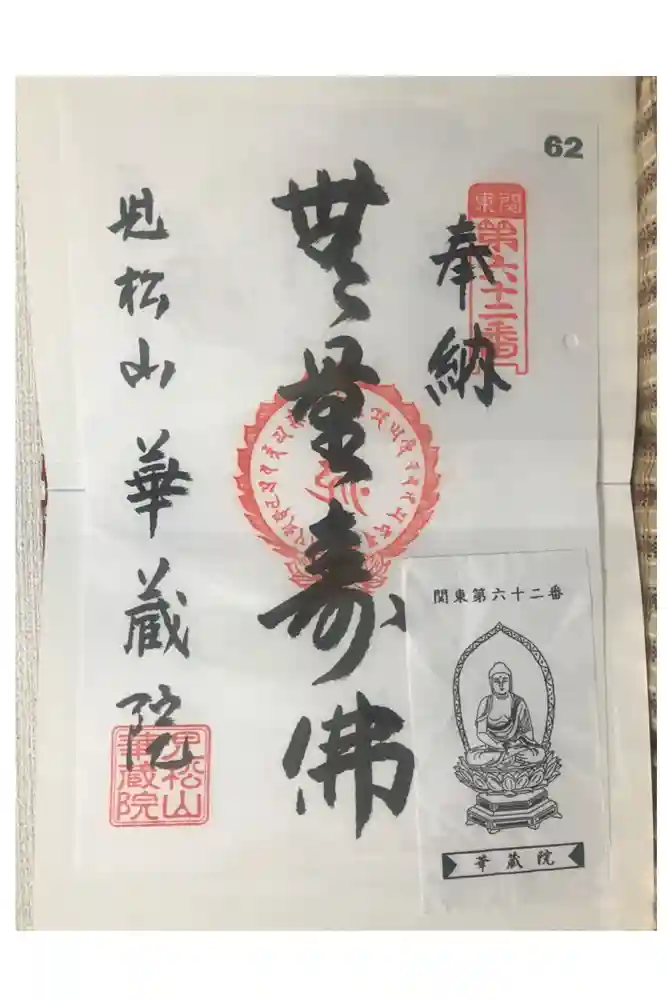 62
関東
第六十二番
奉納
無量寿佛
児松山 華蔵院
児松山
華蔵院
関東第六十二番
華蔵院